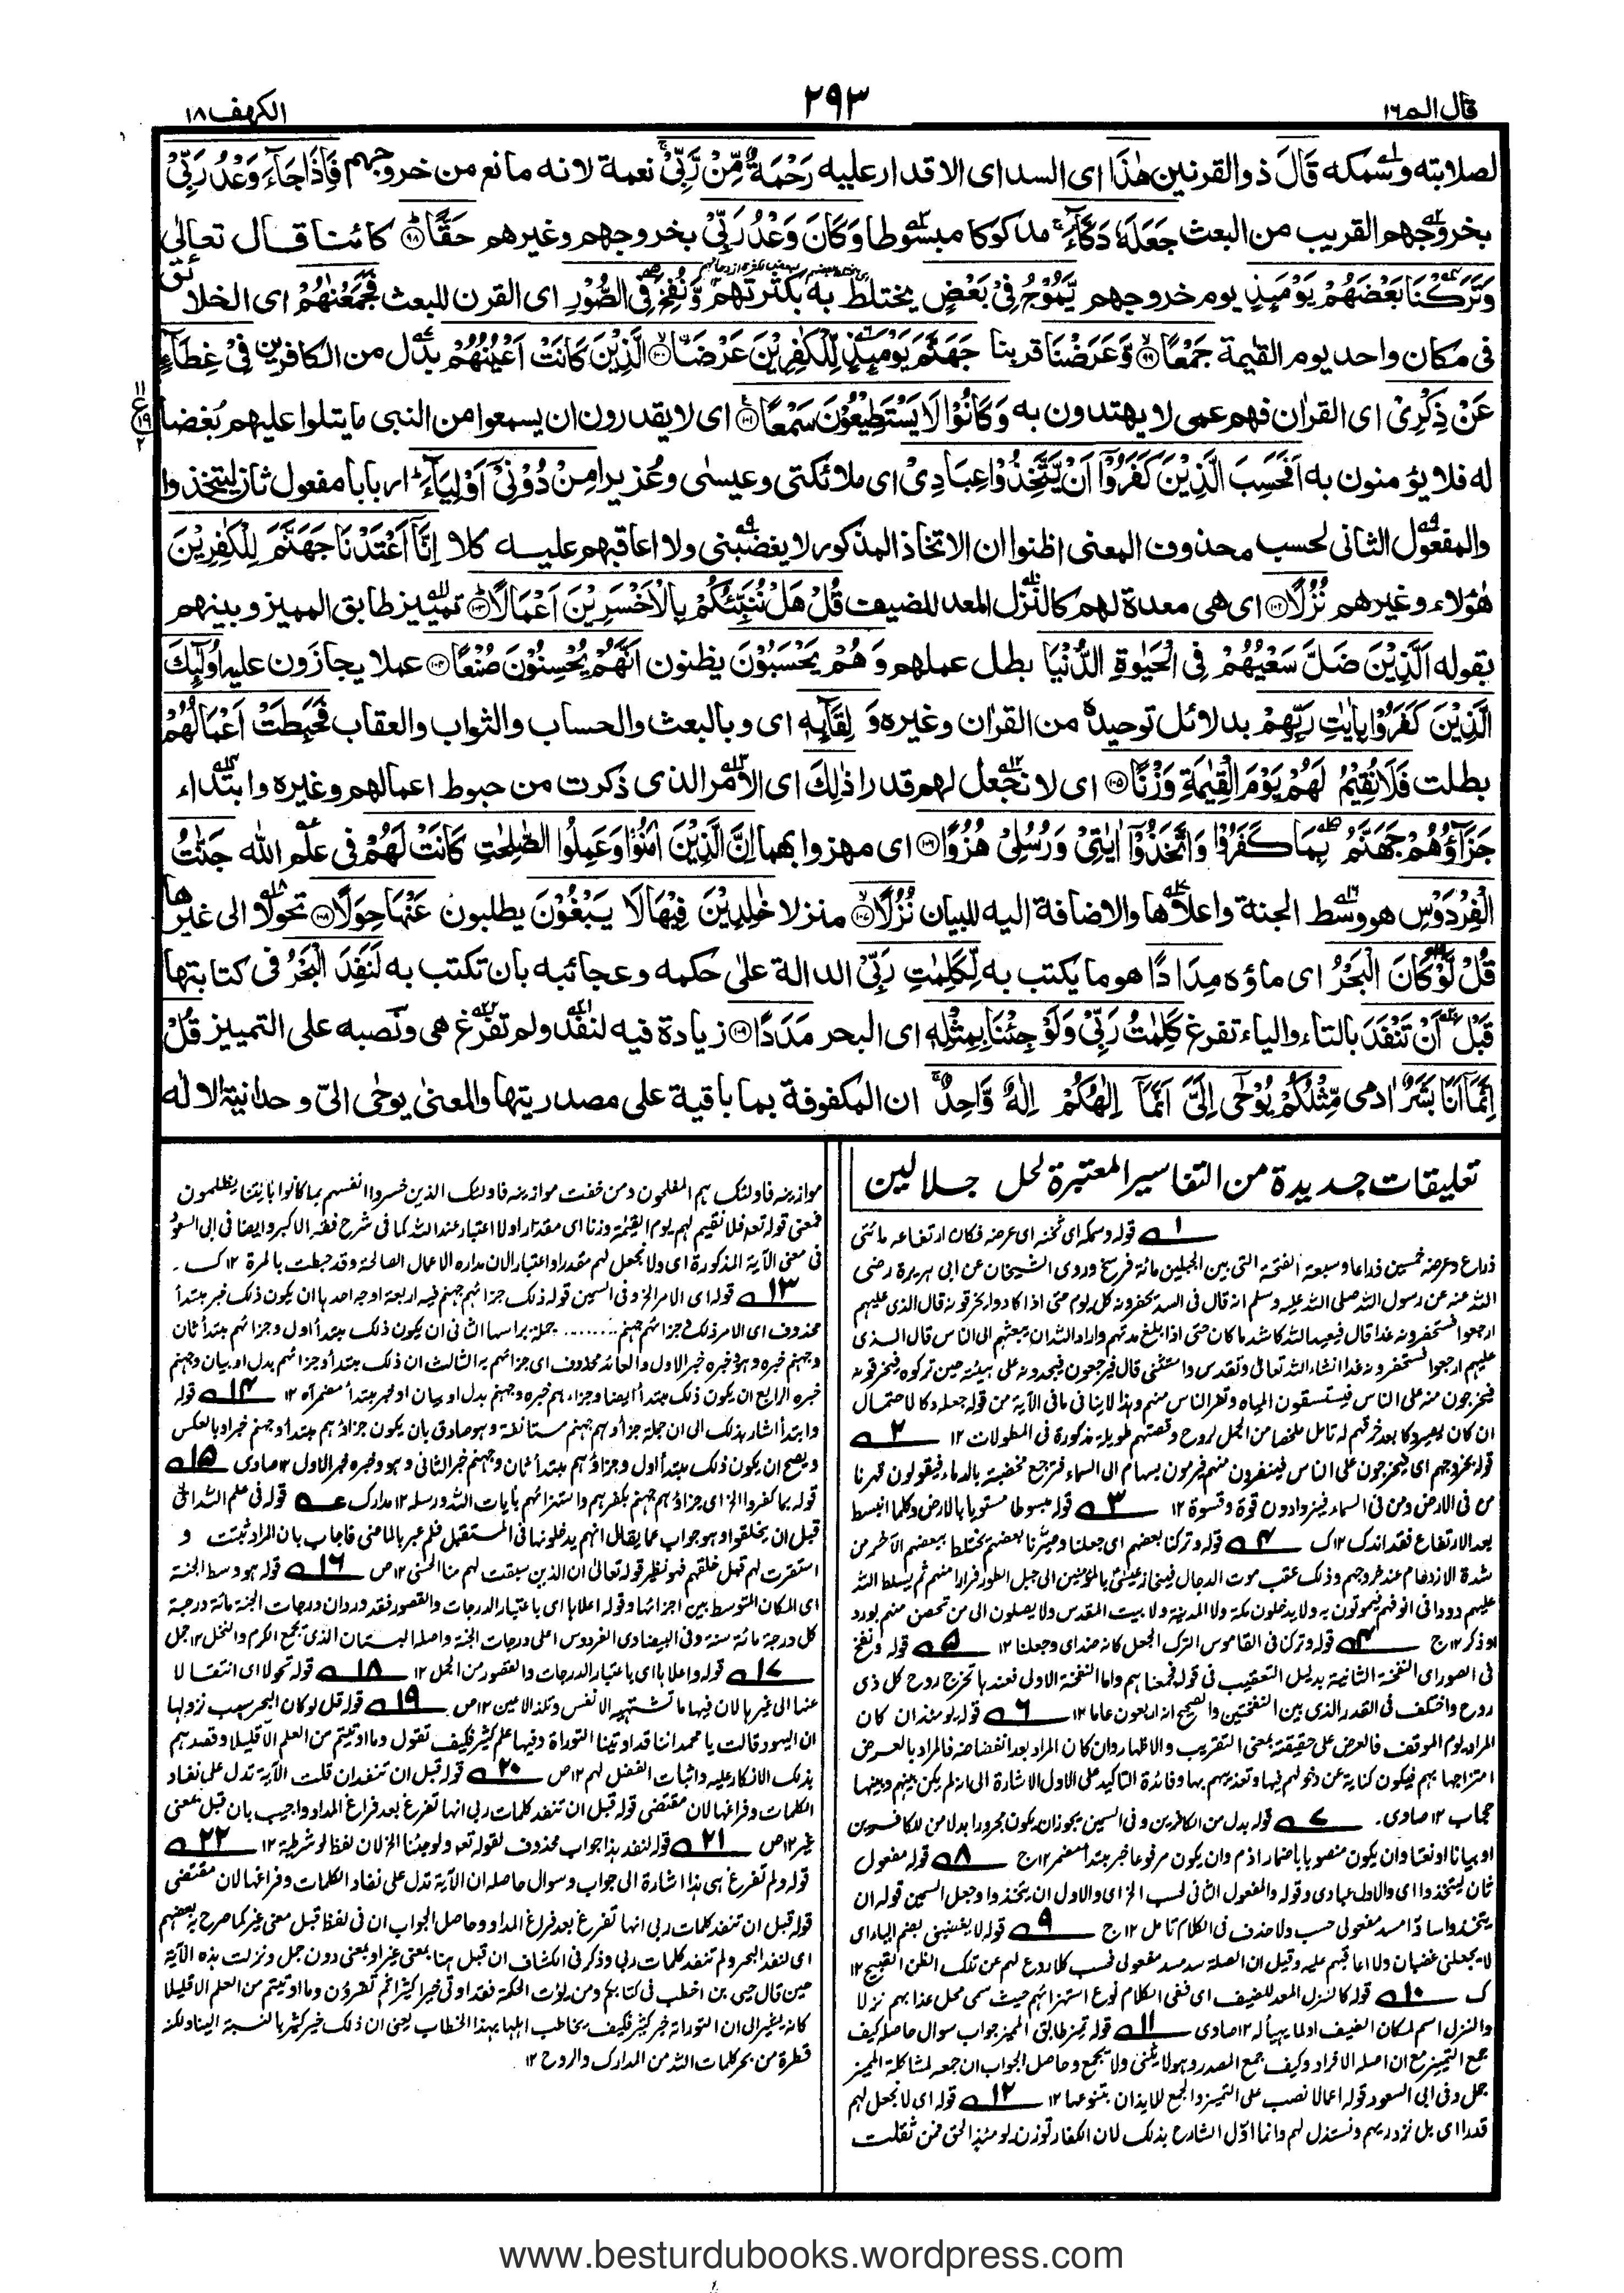 قال الم ١٦
٢٩٣
الكهف ١٨
لصلابته وسمكه قَالَ ذوالقرنين هٰذَا اى السد اى الاقدار عليه رَحْمَةٌ مِّنْ رَّبِّىْ نعمة لانه مانع من خروجهم فَاِذَا جَآءَ وَعْدُ رَبِّىْ
بخروجهم القريب من البعث جَعَلَهٗ دَكَّآءَ مدكوكا مبسوطا وَكَانَ وَعْدُ رَبِّىْ بخروجهم وغيرهم حَقًّا ٩٨ كائنا قال تعالى
وَتَرَكْنَا بَعْضَهُمْ يَوْمَئِذٍ يوم خروجهم يَّمُوْجُ فِىْ بَعْضٍ يختلط به بكثرتهم وَّنُفِخَ فِى الصُّوْرِ اى القرن للبعث فَجَمَعْنٰهُمْ اى الخلائق
فى مكان واحد يوم القيٰمة جَمْعًا ٩٩ وَّعَرَضْنَا قربنا جَهَنَّمَ يَوْمَئِذٍ لِّلْكٰفِرِيْنَ عَرْضَا ١٠٠ الَّذِيْنَ كَانَتْ اَعْيُنُهُمْ بدل من الكافرين فِىْ غِطَآءٍ
عَنْ ذِكْرِىْ اى القراٰن فهم عمى لا يهتدون به وَكَانُوْا لَا يَسْتَطِيْعُوْنَ سَمْعًا ١٠١ اى لا يقدرون ان يسمعوا من النبى ما يتلوا عليهم بُغضا
له فلا يؤمنون به اَفَحَسِبَ الَّذِيْنَ كَفَرُوْٓا اَنْ يَّتَّخِذُوْا عِبَادِىْ اى ملائكتى وعيسٰى وعُزيرا مِنْ دُوْنِىْٓ اَوْلِيَآءَ اربابا مفعول ثان ليتخذوا
والمفعول الثانى لحسب محذوف المعنى اظنوا ان الاتخاذ المذكور لا يغضبنى ولا اعاقبهم عليه كلا اِنَّآ اَعْتَدْنَا جَهَنَّمَ لِلْكٰفِرِيْنَ
هٰؤلاء وغيرهم نُزُلًا ١٠٢ اى هى معدة لهم كالنزل المعد للضيف قُلْ هَلْ نُنَبِّئُكُمْ بِالْاَخْسَرِيْنَ اَعْمَالًا ١٠٣ تمييز طابق المميز وبينهم
بقوله اَلَّذِيْنَ ضَلَّ سَعْيُهُمْ فِى الْحَيٰوةِ الدُّنْيَا بطل عملهم وَهُمْ يَحْسَبُوْنَ يظنون اَنَّهُمْ يُحْسِنُوْنَ صُنْعًا ١٠٤ عملا يجازون عليه اُولٰٓئِكَ
الَّذِيْنَ كَفَرُوْا بِاٰيٰتِ رَبِّهِمْ بدلائل توحيده من القراٰن وغيره وَلِقَآئِهٖ اى وبالبعث والحساب والثواب والعقاب فَحَبِطَتْ اَعْمَالُهُمْ
بطلت فَلَا نُقِيْمُ لَهُمْ يَوْمَ الْقِيٰمَةِ وَزْنًا ١٠٥ اى لا نجعل لهم قدرا ذٰلِكَ اى الامر الذى ذكرت من حبوط اعمالهم وغيره وابتداء
جَزَآؤُهُمْ جَهَنَّمُ بِمَا كَفَرُوْا وَاتَّخَذُوْٓا اٰيٰتِىْ وَرُسُلِىْ هُزُوًا ١٠٦ اى مهزوا بهما اِنَّ الَّذِيْنَ اٰمَنُوْا وَعَمِلُوا الصّٰلِحٰتِ كَانَتْ لَهُمْ فى علم الله جَنّٰتُ
الْفِرْدَوْسِ هو وسط الجنة واعلاها والاضافة اليه للبيان نُزُلًا ١٠٧ منزلا خٰلِدِيْنَ فِيْهَا لَا يَبْغُوْنَ يطلبون عَنْهَا حِوَلًا ١٠٨ تحولا الى غيرها
قُلْ لَّوْ كَانَ الْبَحْرُ اى ماؤه مِدَادًا هو ما يكتب به لِّكَلِمٰتِ رَبِّىْ الدالة على حكمه وعجائبه بان تكتب به لَنَفِدَ الْبَحْرُ فى كتابتها
قَبْلَ اَنْ تَنْفَدَ بالتاء والياء تفرغ كَلِمٰتُ رَبِّىْ وَلَوْ جِئْنَا بِمِثْلِهٖ اى البحر مَدَدًا ١٠٩ زيادة فيه لنفد ولم تفرغ هى ونصبه على التمييز قُلْ
اِنَّمَآ اَنَا بَشَرٌ اٰدمى مِّثْلُكُمْ يُوْحٰٓى اِلَىَّ اَنَّمَآ اِلٰهُكُمْ اِلٰهٌ وَّاحِدٌ ان المكفوفة بما باقية على مصدريتها والمعنى يوحٰى الىّ وحدانية الالٰه
تعليقات جديدة من التفاسير المعتبرة لحل جلالين
١ قوله وسمكه اى ثخنه اى عرضه فكان ارتفاعه مائتى
ذراع وعرضه خمسين ذراعا وسعة الفتحة التى بين الجبلين مائة فرسخ وروى الشيخان عن ابى هريرة رضى
الله عنه عن رسول الله صلى الله عليه وسلم انه قال فى السد يحفرونه كل يوم حتى اذا كادوا يخرقونه قال الذى عليهم
ارجعوا فستحفرونه غدا قال فيعيده الله كاشد ما كان حتى اذا بلغ مدتهم واراد الله ان يبعثهم الى الناس قال الذى
عليهم ارجعوا فستحفرونه غدا انشاء الله تعالى وتقدس واستثنى قال فيرجعون فيجدونه على هيئته حين تركوه فيخرقونه
فيخرجون منه على الناس فيستسقون المياه وتفر الناس منهم وهذا لا ينافى ما فى الآية من قوله جعله دكا لاحتمال
قوله بخروجهم اى فيخرجون على الناس فينفرون منهم فيرمون بسهام الى السماء فترجع مخضبة بالدماء فيقولون قهرنا
من فى الارض ومن فى السماء فيزدادون قوة وقسوة ١٢ ٣ قوله مبسوطا مستويا بالارض وكلما انبسط
بعد الارتفاع فقد اندك ١٢ك ٤ قوله وتركنا بعضهم اى جعلنا وصيرنا بعضهم يختلط ببعضهم الآخر من
شدة الازدحام عند خروجهم وذلك عقب موت الدجال فينحاز عيسىٰ بالمؤمنين الى جبل الطور فرارا منهم ثم يسلط الله
عليهم دودا فى انوفهم فيموتون به ولا يدخلون مكة ولا المدينة ولا بيت المقدس ولا يصلون الى من تحصن منهم بورد
او ذكر ١٢ج ٤ قوله وترك فى القاموس الترك الجعل كانه ضد اى وجعلنا ١٢ ٥ قوله ونفخ
فى الصور اى النفخة الثانية بدليل التعقيب فى قوله فجمعناهم واما النفخة الاولى فعندها تخرج روح كل ذى
روح واختلف فى القدر الذى بين النفختين والصحيح انه اربعون عاما ١٢ ٦ قوله يومئذ ان كان
المراد يوم الموقف فالعرض على حقيقته بمعنى التقريب والاظهار وان كان المراد بعد انفضاضه فالمراد بالعرض
امتزاجها بهم فيكون كناية عن دخولهم فيها وتعذيبهم بها وفائدة التاكيد على الاول الاشارة الى انه لم يكن بينهم وبينها
حجاب ١٢ صاوى. ٧ قوله بدل من الكافرين وفى السمين يجوز ان يكون مجرورا بدلا من للكافرين
او بيانا او نعتا وان يكون منصوبا باضمار اذم وان يكون مرفوعا خبر مبتدأ مضمر ١٢ج ٨ قوله مفعول
ثان ليتخذوا اى والاول عبادى وقوله والمفعول الثانى لحسب الخ اى والاول ان يتخذوا وجعل السمين قوله ان
يتخذوا سادا مسد مفعولى حسب ولا حذف فى الكلام تامل ١٢ ج ٩ قوله لا يغضبنى بضم الياء اى
لا يجعلنى غضبان ولا اعاقبهم عليه وقيل ان الصلة سد مسد مفعولى فحسب كلا ردع لهم عن تلك الظن القبيح ١٢
ك ١٠ قوله كالنزل المعد للضيف اى ففى الكلام نوع استهزاء بهم حيث سمى محل عذابهم نزلا
والنزل اسم لمكان الضيف او لما يهيأ له ١٢ صاوى ١١ قوله تمييز طابق المميز جواب سوال حاصله كيف
جمع التمييز مع ان اصله الافراد وكيف جمع المصدر وهو لا يثنى ولا يجمع وحاصل الجواب ان جمعه لمشاكلة المميز
جمل وفى ابى السعود قوله اعمالا نصب على التمييز والجمع للايذان بتنوعها ١٢ ١٢ قوله اى لا نجعل لهم
قدرا اى بل نزدريهم ونستذل لهم وانما اول الشارح بذلك لان الكفار توزن يومئذ الحق فمن ثقلت
موازينه فاولئك هم المفلحون ومن خفت موازينه فاولئك الذين خسروا انفسهم بما كانوا باٰيتنا يظلمون
فمعنى قوله تعه فلا نقيم لهم يوم القيٰمة وزنا اى مقدارا ولا اعتبار عند الله كما فى شرح فقه الاكبر وايضا فى ابى السعود
فى معنى الآية المذكورة اى ولا نجعل لهم مقدرا واعتبارا لان مداره الاعمال الصالحة وقد حبطت بالمرة ١٢ ك.
١٣ قوله اى الامر الخ وفى السمين قوله ذلك جزائهم جهنم فيه اربعة اوجه احدها ان يكون ذلك خبر مبتدأ
محذوف اى الامر ذلك وجزائهم جهنم جملة براسها الثانى ان يكون ذلك مبتدأ اول وجزائهم مبتدأ ثان
وجهنم خبره وهو وخبره خبر الاول والعائد محذوف اى جزائهم به الثالث ان ذلك مبتدأ وجزائهم بدل او بيان وجهنم
خبره الرابع ان يكون ذلك مبتدأ ايضا وجزاءهم خبره وجهنم بدل او بيان او خبر مبتدأ مضمر آه ١٢ ١٤ قوله
وابتدأ اشار بذلك الى ان جملة جزاؤهم جهنم مستانفة وهو صادق بان يكون جزاؤهم مبتدأ وجهنم خبر او بالعكس
ويصح ان يكون ذلك مبتدأ اول وجزاؤهم مبتدأ ثان وجهنم خبر الثانى وهو وخبره خبر الاول ١٢ صاوى ١٥
قوله بما كفروا الخ اى جزاؤهم جهنم بكفرهم واستهزائهم بآيات الله ورسله ١٢ مدارك قوله فى علم الله اى
قبل ان يخلقوا وهو جواب عما يقال انهم يدخلونها فى المستقبل فلم عبر بالماضى فاجاب بان المراد ثبتت و
استقرت لهم قبل خلقهم فهو نظير قوله تعالىٰ ان الذين سبقت لهم منا الحسنى ١٢ ص ١٦ قوله هو وسط الجنة
اى المكان المتوسط بين اجزائها وقوله اعلاها اى باعتبار الدرجات والقصور فقد ورد ان درجات الجنة مائة درجة
كل درجة مائة سنة وفى البيضاوى الفردوس اعلى درجات الجنة واصله البستان الذى يجمع الكرم والنخل ١٢ جمل
١٧ قوله واعلاها اى باعتبار الدرجات والقصور من الجمل ١٢ ١٨ قوله تحولا اى انتقالا
عنها الى غيرها لان فيها ما تشتهيه الانفس وتلذ الاعين ١٢ ص. ١٩ قوله قل لو كان البحر سبب نزولها
ان اليهود قالت يا محمد اننا قد اوتينا التوراة وفيها علم كثير فكيف تقول وما اوتيتم من العلم الا قليلا وقصدهم
بذلك الانكار عليه واثبات الفضل لهم ١٢ ص ٢٠ قوله قبل ان تنفد ان قلت الآية تدل على نفاد
الكلمات وفراغها لان مقتضى قوله قبل ان تنفد كلمات ربى انها تفرغ بعد فراغ المداد واجيب بان قبل بمعنى
غير ١٢ ص ٢١ قوله لنفد هذا جواب محذوف لقوله تعه ولو جئنا الخ لان لفظ لو شرطية ١٢ ٢٢
قوله ولم تفرغ هى هذا اشارة الى جواب وسوال حاصله ان الآية تدل على نفاد الكلمات وفراغها لان مقتضى
قوله قبل ان تنفد كلمات ربى انها تفرغ بعد فراغ المداد وحاصل الجواب ان فى لفظ قبل معنى غير كما صرح به بعضهم
اى لنفد البحر ولم تنفد كلمات ربى وذكر فى الكشاف ان قبل هنا بمعنى غير او بمعنى دون جمل ونزلت هذه الآية
حين قال حيى بن اخطب فى كتابكم ومن يؤت الحكمة فقد اوتى خيرا كثيرا ثم تقرؤن وما اوتيتم من العلم الا قليلا
كانه يشير الى ان التوراة خير كثير فكيف يخاطب اهلها بهذا الخطاب يعنى ان ذلك خير كثير بالنسبة الينا ولكنه
قطرة من بحر كلمات الله من المدارك والروح ١٢
www.besturdubooks.wordpress.com